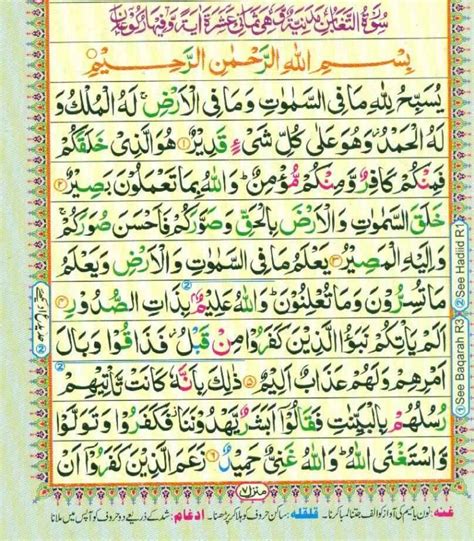 سُوْرَةُ التَّغَابُنِ مَدَنِيَّةٌ وَّهِيَ ثَمَانِيَ عَشْرَةَ اٰيَةً وَّفِيْهَا رُكُوْعَانِ
بِسْمِ اللّٰهِ الرَّحْمٰنِ الرَّحِيْمِ
يُسَبِّحُ لِلّٰهِ مَا فِي السَّمٰوٰتِ وَمَا فِي الْاَرْضِ ۚ لَهُ الْمُلْكُ وَ
لَهُ الْحَمْدُ ۫ وَهُوَ عَلٰى كُلِّ شَيْءٍ قَدِيْرٌ ﴿۱﴾ هُوَ الَّذِيْ خَلَقَكُمْ
فَمِنْكُمْ كَافِرٌ وَّمِنْكُمْ مُّؤْمِنٌ ؕ وَاللّٰهُ بِمَا تَعْمَلُوْنَ بَصِيْرٌ ﴿۲﴾
خَلَقَ السَّمٰوٰتِ وَالْاَرْضَ بِالْحَقِّ وَصَوَّرَكُمْ فَاَحْسَنَ صُوَرَكُمْ ۚ
وَاِلَيْهِ الْمَصِيْرُ ﴿۳﴾ يَعْلَمُ مَا فِي السَّمٰوٰتِ وَالْاَرْضِ وَيَعْلَمُ
مَا تُسِرُّوْنَ وَمَا تُعْلِنُوْنَ ؕ وَاللّٰهُ عَلِيْمٌۢ بِذَاتِ الصُّدُوْرِ ﴿۴﴾
اَلَمْ يَاْتِكُمْ نَبَؤُا الَّذِيْنَ كَفَرُوْا مِنْ قَبْلُ ؗ فَذَاقُوْا وَبَالَ
اَمْرِهِمْ وَلَهُمْ عَذَابٌ اَلِيْمٌ ﴿۵﴾ ذٰلِكَ بِاَنَّهٗ كَانَتْ تَّاْتِيْهِمْ
رُسُلُهُمْ بِالْبَيِّنٰتِ فَقَالُوْٓا اَبَشَرٌ يَّهْدُوْنَنَا ؗ فَكَفَرُوْا وَتَوَلَّوْا
وَّاسْتَغْنَى اللّٰهُ ؕ وَاللّٰهُ غَنِيٌّ حَمِيْدٌ ﴿۶﴾ زَعَمَ الَّذِيْنَ كَفَرُوْٓا اَنْ
منزل ۷
غنه: نون یا میم کی آواز کو الف جتنا لمبا کرنا۔ قلقلہ: ساکن حروف کو ہلا کر پڑھنا۔ ادغام: شد کے ذریعے دو حروف کو آپس میں ملانا
① See Baqarah R3 ② See Hadiid R1